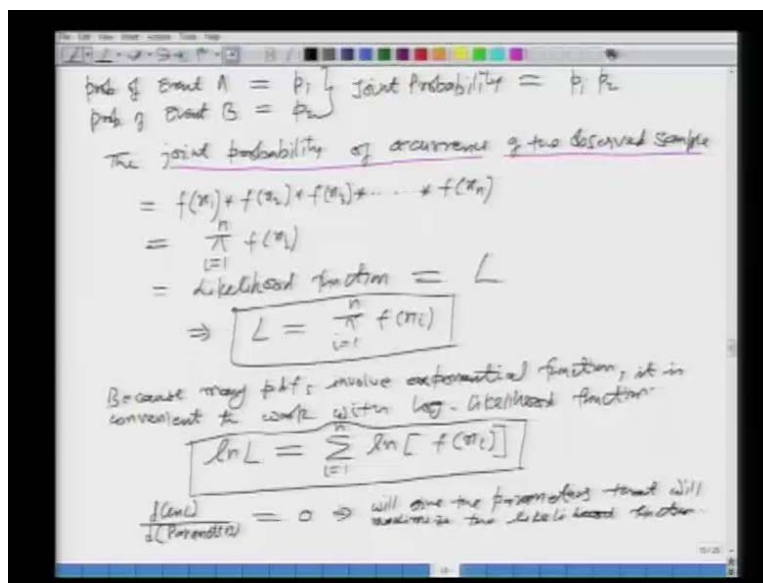 prob of Event A = p₁ } Joint Probability = p₁ p₂
prob of Event B = p₂
The joint probability of occurrence of the observed sample
= f(x₁) * f(x₂) * f(x₃) * ..... * f(xₙ)
= n π i=1 f(xᵢ)
= Likelihood function = L
⇒ L = n π i=1 f(xᵢ)
Because many pdfs involve exponential function, it is
convenient to work with log-likelihood function.
ln L = n Σ i=1 ln [ f(xᵢ) ]
d(lnL) / d(Parameters) = 0 ⇒ will give the parameters that will
maximize the likelihood function.